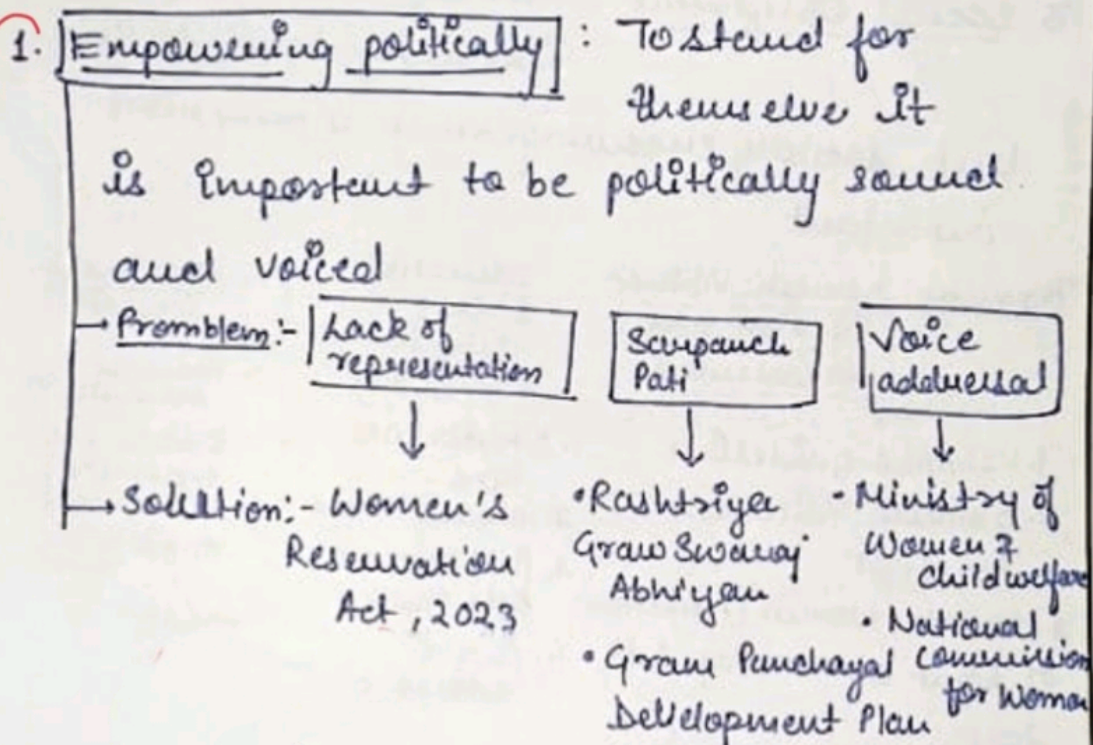 1. Empowering politically : To stand for
themselve it
is important to be politically sound
and voiced
Promblem:- Lack of
representation
Sarpanch
Pati
Voice
addressal
Solution:- Women's
Reservation
Act, 2023
• Rashtriya
Gram Swaraj
Abhiyan
• Gram Panchayat
Development Plan
• Ministry of
Women &
child welfare
• National
Commission
for Women